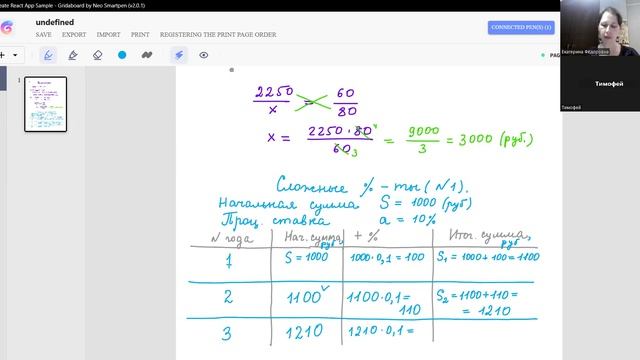 eate React App Sample - Gridaboard by Neo Smartpen (v2.0.1)
undefined
SAVE EXPORT IMPORT PRINT REGISTERING THE PRINT PAGE ORDER
CONNECTED PEN(S) (1)
PAG
Екатерина Фёдоровна
Тимофей
Тимофей
1
2250/x = 60/80
x = 2250·80 4/60 3 = 9000/3 = 3000 (руб.)
Сложные %-ты (№1).
Начальная сумма S = 1000 (руб)
Проц. ставка a = 10%
N года Нач. сумма, руб + % Итог. сумма, руб
1 S = 1000 1000·0,1 = 100 S₁ = 1000 + 100 = 1100
2 1100 1100·0,1 = 110 S₂ = 1100 + 110 = = 1210
3 1210 1210·0,1 =